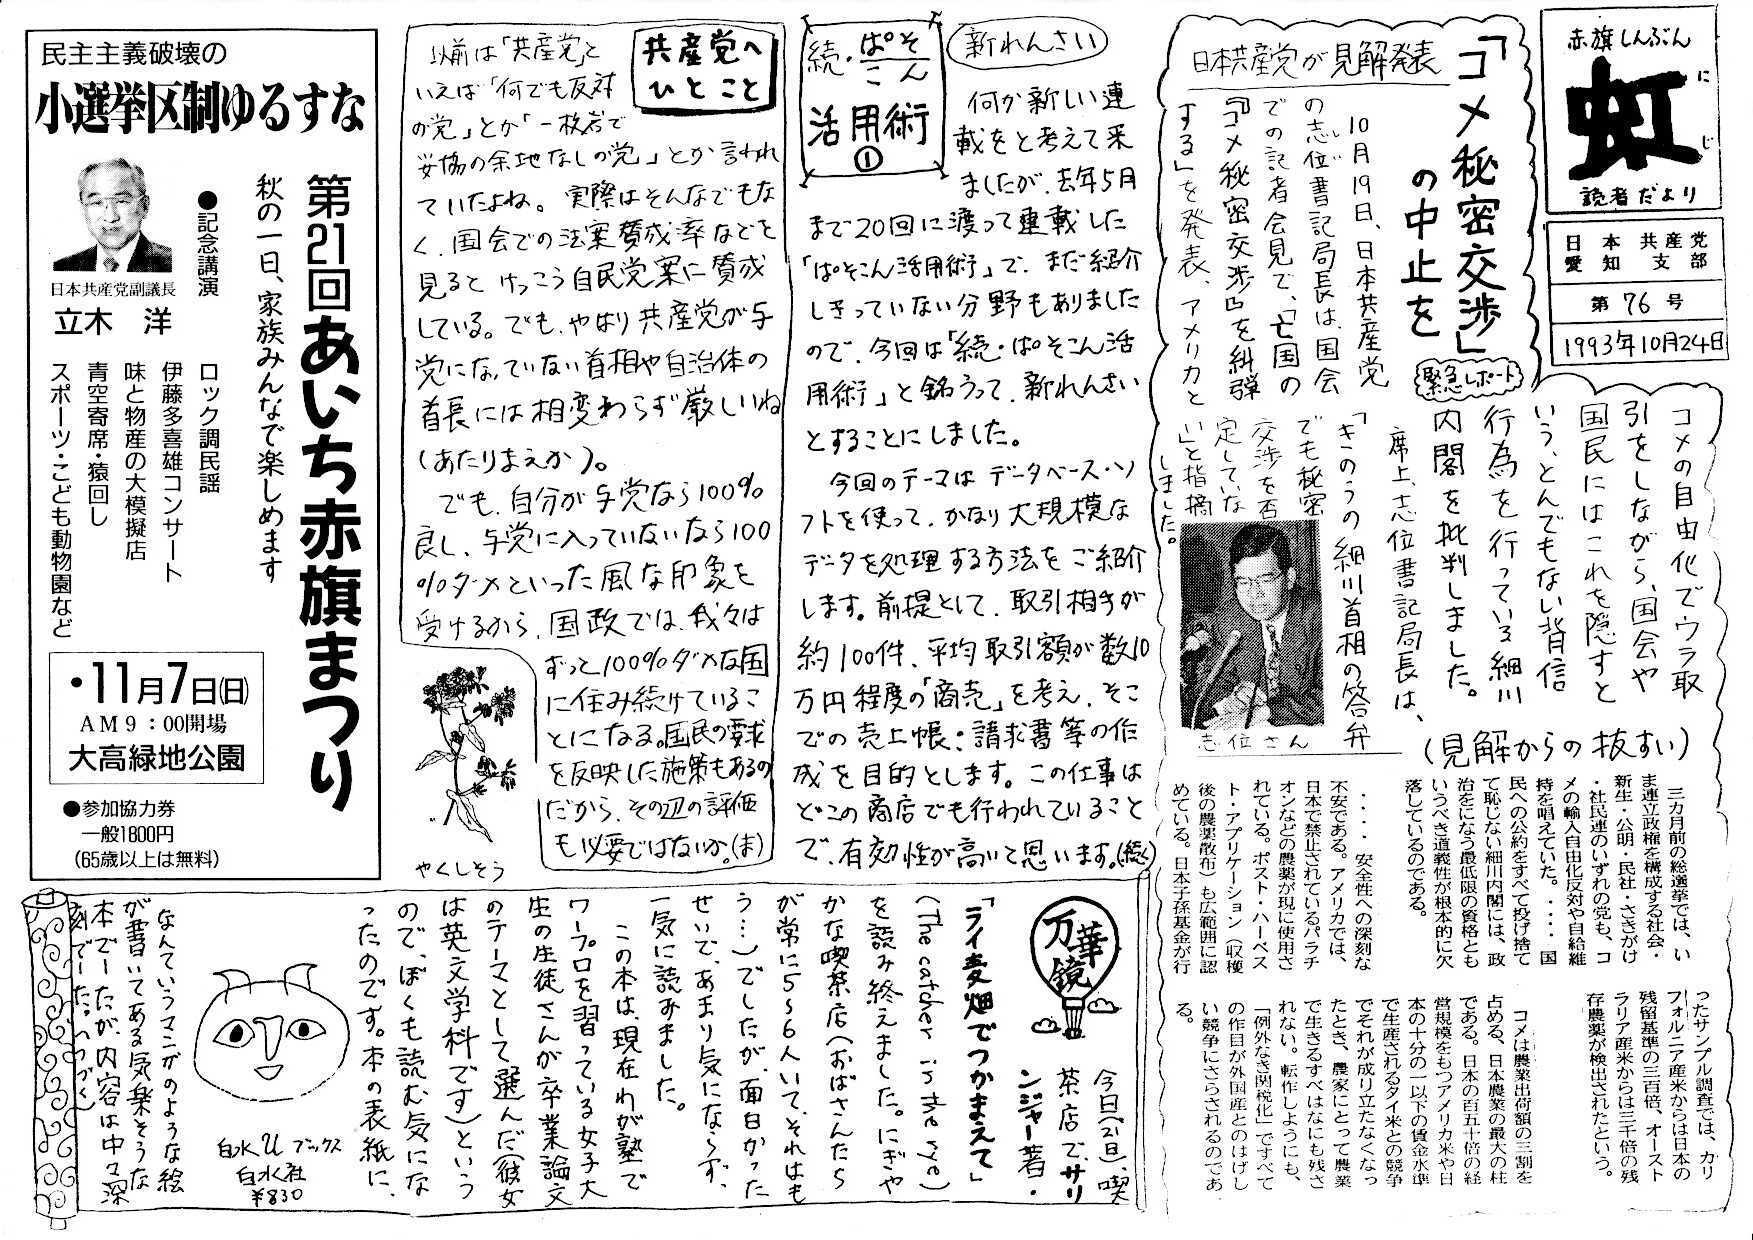 赤旗しんぶん
虹
にじ
読者だより
日本共産党
愛知支部
第76号
1993年10月24日
「コメ秘密交渉」
の中止を
日本共産党が見解発表
緊急レポート
10月19日、日本共産党
の志位書記局長は、国会
での記者会見で、「亡国の
『コメ秘密交渉』を糾弾
する」を発表、アメリカと
コメの自由化でウラ取
引をしながら、国会や
国民にはこれを隠すと
いう、とんでもない背信
行為を行っている細川
内閣を批判しました。
席上、志位書記局長は、
「きのうの細川首相の答弁
でも秘密
交渉を否
定していな
い」と指摘
しました。
志位さん
(見解からの抜すい)
三カ月前の総選挙では、い
ま連立政権を構成する社会・
新生・公明・民社・さきがけ
・社民連のいずれの党も、コ
メの輸入自由化反対や自給維
持を唱えていた。・・・・国
民への公約をすべて投げ捨て
て恥じない細川内閣には、政
治をになう最低限の資格とも
いうべき道義性が根本的に欠
落しているのである。
・・・・安全性への深刻な
不安である。アメリカでは、
日本で禁止されているパラチ
オンなどの農薬が現に使用さ
れている。ポスト・ハーベス
ト・アプリケーション(収穫
後の農薬散布)も広範囲に認
めている。日本子孫基金が行
ったサンプル調査では、カリ
フォルニア産米からは日本の
残留基準の三百倍、オースト
ラリア産米からは三千倍の残
存農薬が検出されたという。
コメは農業出荷額の三割を
占める、日本農業の最大の柱
である。日本の百五十倍の経
営規模をもつアメリカ米や日
本の十分の一以下の賃金水準
で生産されるタイ米との競争
でそれが成り立たなくなっ
たとき、農家にとって農業
で生きるすべはなにも残さ
れない。転作しようにも、
「例外なき関税化」ですべて
の作目が外国産とのはげし
い競争にさらされるのであ
る。
新れんさい
続・ぱそこん
活用術
①
何か新しい連
載をと考えて来
ましたが、去年5月
まで20回に渡って連載した
「ぱそこん活用術」で、まだ紹介
しきっていない分野もありました
ので、今回は「続・ぱそこん活
用術」と銘うって、新れんさい
とすることにしました。
今回のテーマはデータベース・ソ
フトを使って、かなり大規模な
データを処理する方法をご紹介
します。前提として、取引相手が
約100件、平均取引額が数10
万円程度の「商売」を考え、そこ
での売上帳・請求書等の作
成を目的とします。この仕事は
どこの商店でも行われていること
で、有効性が高いて思います。(続)
共産党へ
ひとこと
以前は「共産党」と
いえば「何でも反対
の党」とか「一枚岩で
妥協の余地なしの党」とか言われ
ていたよね。実際はそんなでもな
く、国会での法案賛成率などを
見るとけっこう自民党案に賛成
している。でも、やはり共産党が与
党になっていない首相や自治体の
首長には相変わらず厳しいね
(あたりまえか)。
でも、自分が与党なら100%
良し、与党に入っていないなら100
%ダメといった風な印象を
受けるから、国政では、我々は
ずっと100%ダメな国
に住み続けているこ
とになる。国民の要求
を反映した施策もあるの
だから、その辺の評価
も必要ではないか。(ま)
やくしそう
民主主義破壊の
小選挙区制ゆるすな
第21回あいち赤旗まつり
秋の一日、家族みんなで楽しめます
●記念講演
日本共産党副議長
立木 洋
ロック調民謡
伊藤多喜雄コンサート
味と物産の大模擬店
青空寄席・猿回し
スポーツ・こども動物園など
・11月7日(日)
AM9:00開場
大高緑地公園
●参加協力券
一般1800円
(65歳以上は無料)
万華鏡
今日(21日)、喫
茶店で、サリ
ンジャー著・
「ライ麦畑でつかまえて」
(The catcher in the rye)
を読み終えました。にぎや
かな喫茶店(おばさんたち
が常に5〜6人いて、それはも
う…)でしたが、面白かった
せいで、あまり気にならず、
一気に読みました。
この本は、現在わが塾で
ワープロを習っている女子大
生の生徒さんが卒業論文
のテーマとして選んだ(彼女
は英文学科です)という
ので、ぼくも読む気にな
ったのです。本の表紙に、
なんていうマンガのような絵
が書いてある気楽そうな
本でしたが、内容は中々深
刻でした。(つづく)
白水Uブックス
白水社
¥830